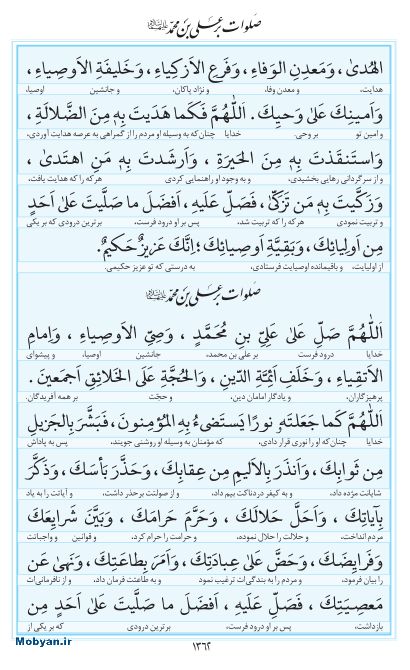 صلوات بر علی بن محمّد علیه‌السلام
الهُدىٰ ، وَمَعدِنِ الوَفاءِ ، وَفَرعِ الاَزكِیاءِ ، وَخَلیفَةِ الاَوصِیاءِ ،
هدایت، و معدن وفا، و نژاد پاکان، و جانشین اوصیا،
وَاَمینِكَ عَلىٰ وَحیِكَ . اَللّٰهُمَّ فَكَما هَدَیتَ بِهِ مِنَ الضَّلالَةِ ،
و امین تو بر وحی. خدایا چنان‌که به وسیله او مردم را از گمراهی به عرصه هدایت آوردی،
وَاستَنقَذتَ بِهِ مِنَ الحَیرَةِ ، وَاَرشَدتَ بِهِ مَنِ اهتَدىٰ ،
و از سرگردانی رهایی بخشیدی، و به وجود او راهنمایی کردی هر که را که هدایت یافت،
وَزَكَّیتَ بِهِ مَن تَزَكّىٰ ، فَصَلِّ عَلَیهِ ، اَفضَلَ ما صَلَّیتَ عَلىٰ اَحَدٍ
و تربیت نمودی هر که را که تربیت شد، پس بر او درود فرست، برترین درودی که بر یکی
مِن اَولِیائِكَ ، وَبَقِیَّةِ اَوصِیائِكَ ؛ اِنَّكَ عَزیزٌ حَكیمٌ.
از اولیایت، و باقیمانده اوصیایت فرستادی، به درستی که تو عزیز حکیمی.
صلوات بر علی بن محمّد علیه‌السلام
اَللّٰهُمَّ صَلِّ عَلىٰ عَلِیِّ بنِ مُحَمَّدٍ ، وَصِیِّ الاَوصِیاءِ ، وَاِمامِ
خدایا درود فرست بر علی بن محمد، جانشین اوصیا، و پیشوای
الاَتقِیاءِ ، وَخَلَفِ اَئِمَّةِ الدّینِ ، وَالحُجَّةِ عَلَى الخَلائِقِ اَجمَعینَ .
پرهیزگاران، و یادگار امامان دین، و حجّت بر همه آفریدگان.
اَللّٰهُمَّ كَما جَعَلتَهُ نورًا یَستَضیءُ بِهِ المُؤمِنونَ ، فَبَشَّرَ بِالجَزیلِ
خدایا چنان که او را نوری قرار دادی، که مؤمنان به وسیله او روشنی جویند، پس به پاداش
مِن ثَوابِكَ ، وَاَنذَرَ بِالاَلیمِ مِن عِقابِكَ ، وَحَذَّرَ بَأسَكَ ، وَذَكَّرَ
شایانت مژده داد، و به کیفر دردناکت بیم داد، و از صولتت برحذر داشت، و آیاتت را به یاد
بِآیاتِكَ ، وَاَحَلَّ حَلالَكَ ، وَحَرَّمَ حَرامَكَ ، وَبَیَّنَ شَرایِعَكَ
مردم انداخت، و حلالت را حلال نموده، و حرامت را حرام کرد، و قوانین و واجباتت
وَفَرایِضَكَ ، وَحَضَّ عَلىٰ عِبادَتِكَ ، وَاَمَرَ بِطاعَتِكَ ، وَنَهىٰ عَن
را بیان فرمود، و مردم را به بندگی‌ات ترغیب نمود و به طاعتت فرمان داد، و از نافرمانی‌ات
مَعصِیَتِكَ ، فَصَلِّ عَلَیهِ ، اَفضَلَ ما صَلَّیتَ عَلىٰ اَحَدٍ مِن
بازداشت، پس بر او درود فرست، برترین درودی که بر یکی از
۱۳۶۲
Mobyan.ir